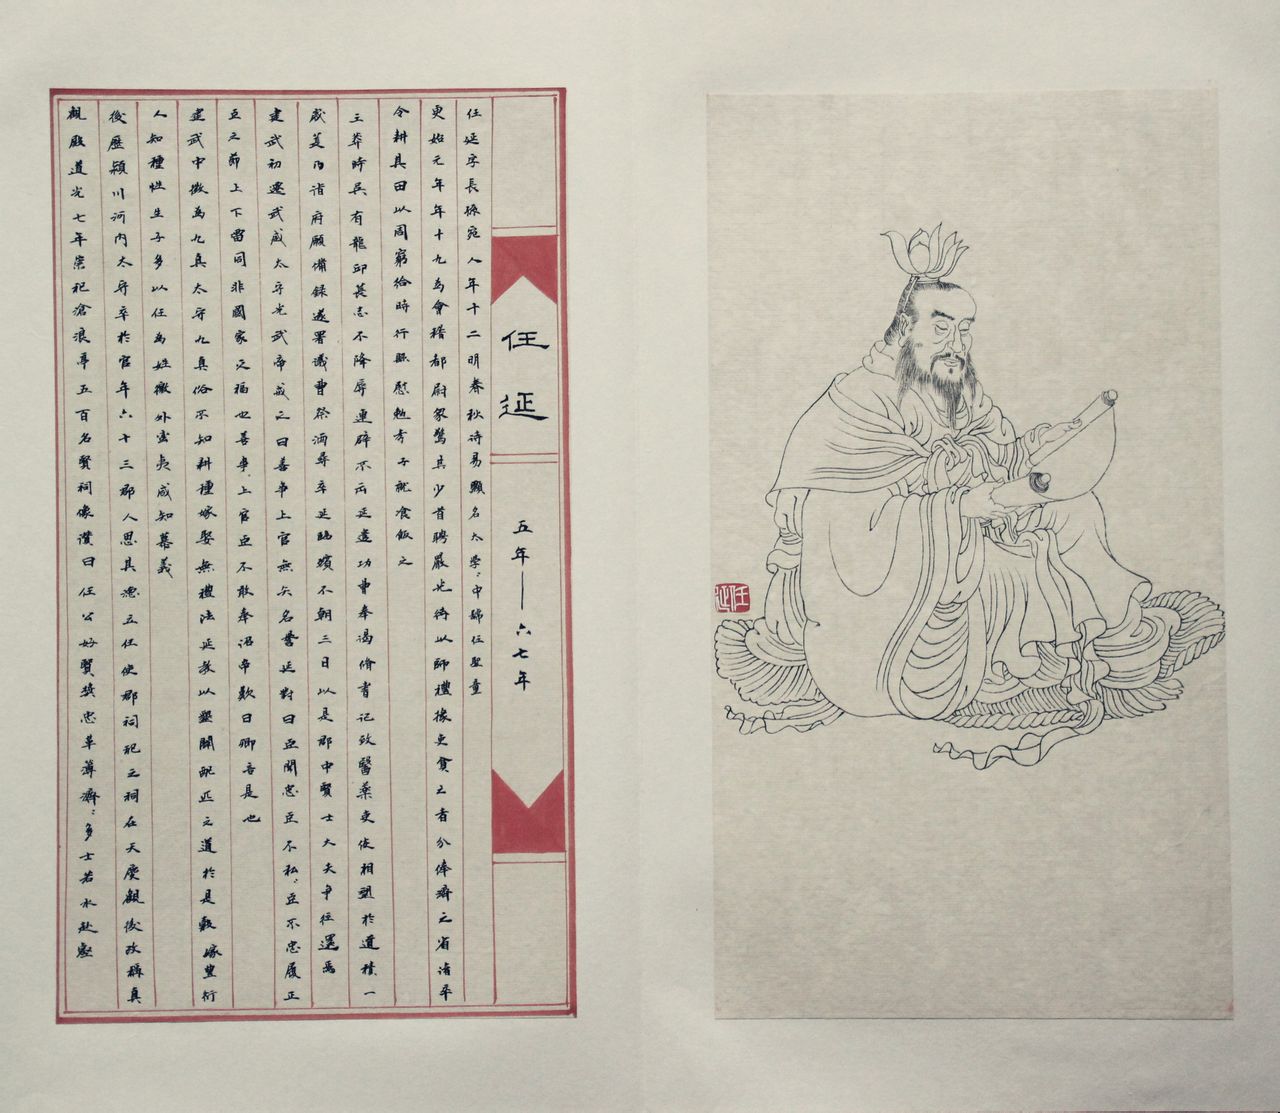 任延
五年——六七年
任延字長孫宛人年十二明春秋詩易顯名太學〻中號任聖童
更始元年年十九為會稽都尉眾驚其少首聘嚴光待以師禮掾吏貧乏者分俸濟之省諸卒
令耕其田以周窮給時行縣慰勉孝子就食飯之
王莽時吳有龍邱萇志不降辱連辟不應延遣功曹奉謁脩書記致醫藥吏使相望於道積一
歲萇乃詣府願備錄遂署議曹祭酒尋卒延臨殯不朝三日以是郡中賢士大夫争往還焉
建武初遷武威太守光武帝戒之曰善事上官無失名譽延對曰臣聞忠臣不私〻臣不忠履正
立之節上下雷同非國家之福也善事上官臣不敢奉詔帝歎曰卿言是也
建武中徵為九真太守九真俗不知耕種嫁娶無禮法延教以墾闢配匹之道於是穀稼豐衍
人知種性生子多以任為姓徼外蛮夷咸知慕義
後歷潁川河内太守卒於官年六十三郡人思其德立任使郡祠祀之祠在天慶觀後改稱真
觀殿道光七年崇祀滄浪亭五百名賢祠像讚曰任公好賢獎忠革薄濟〻多士若水赴壑
任延